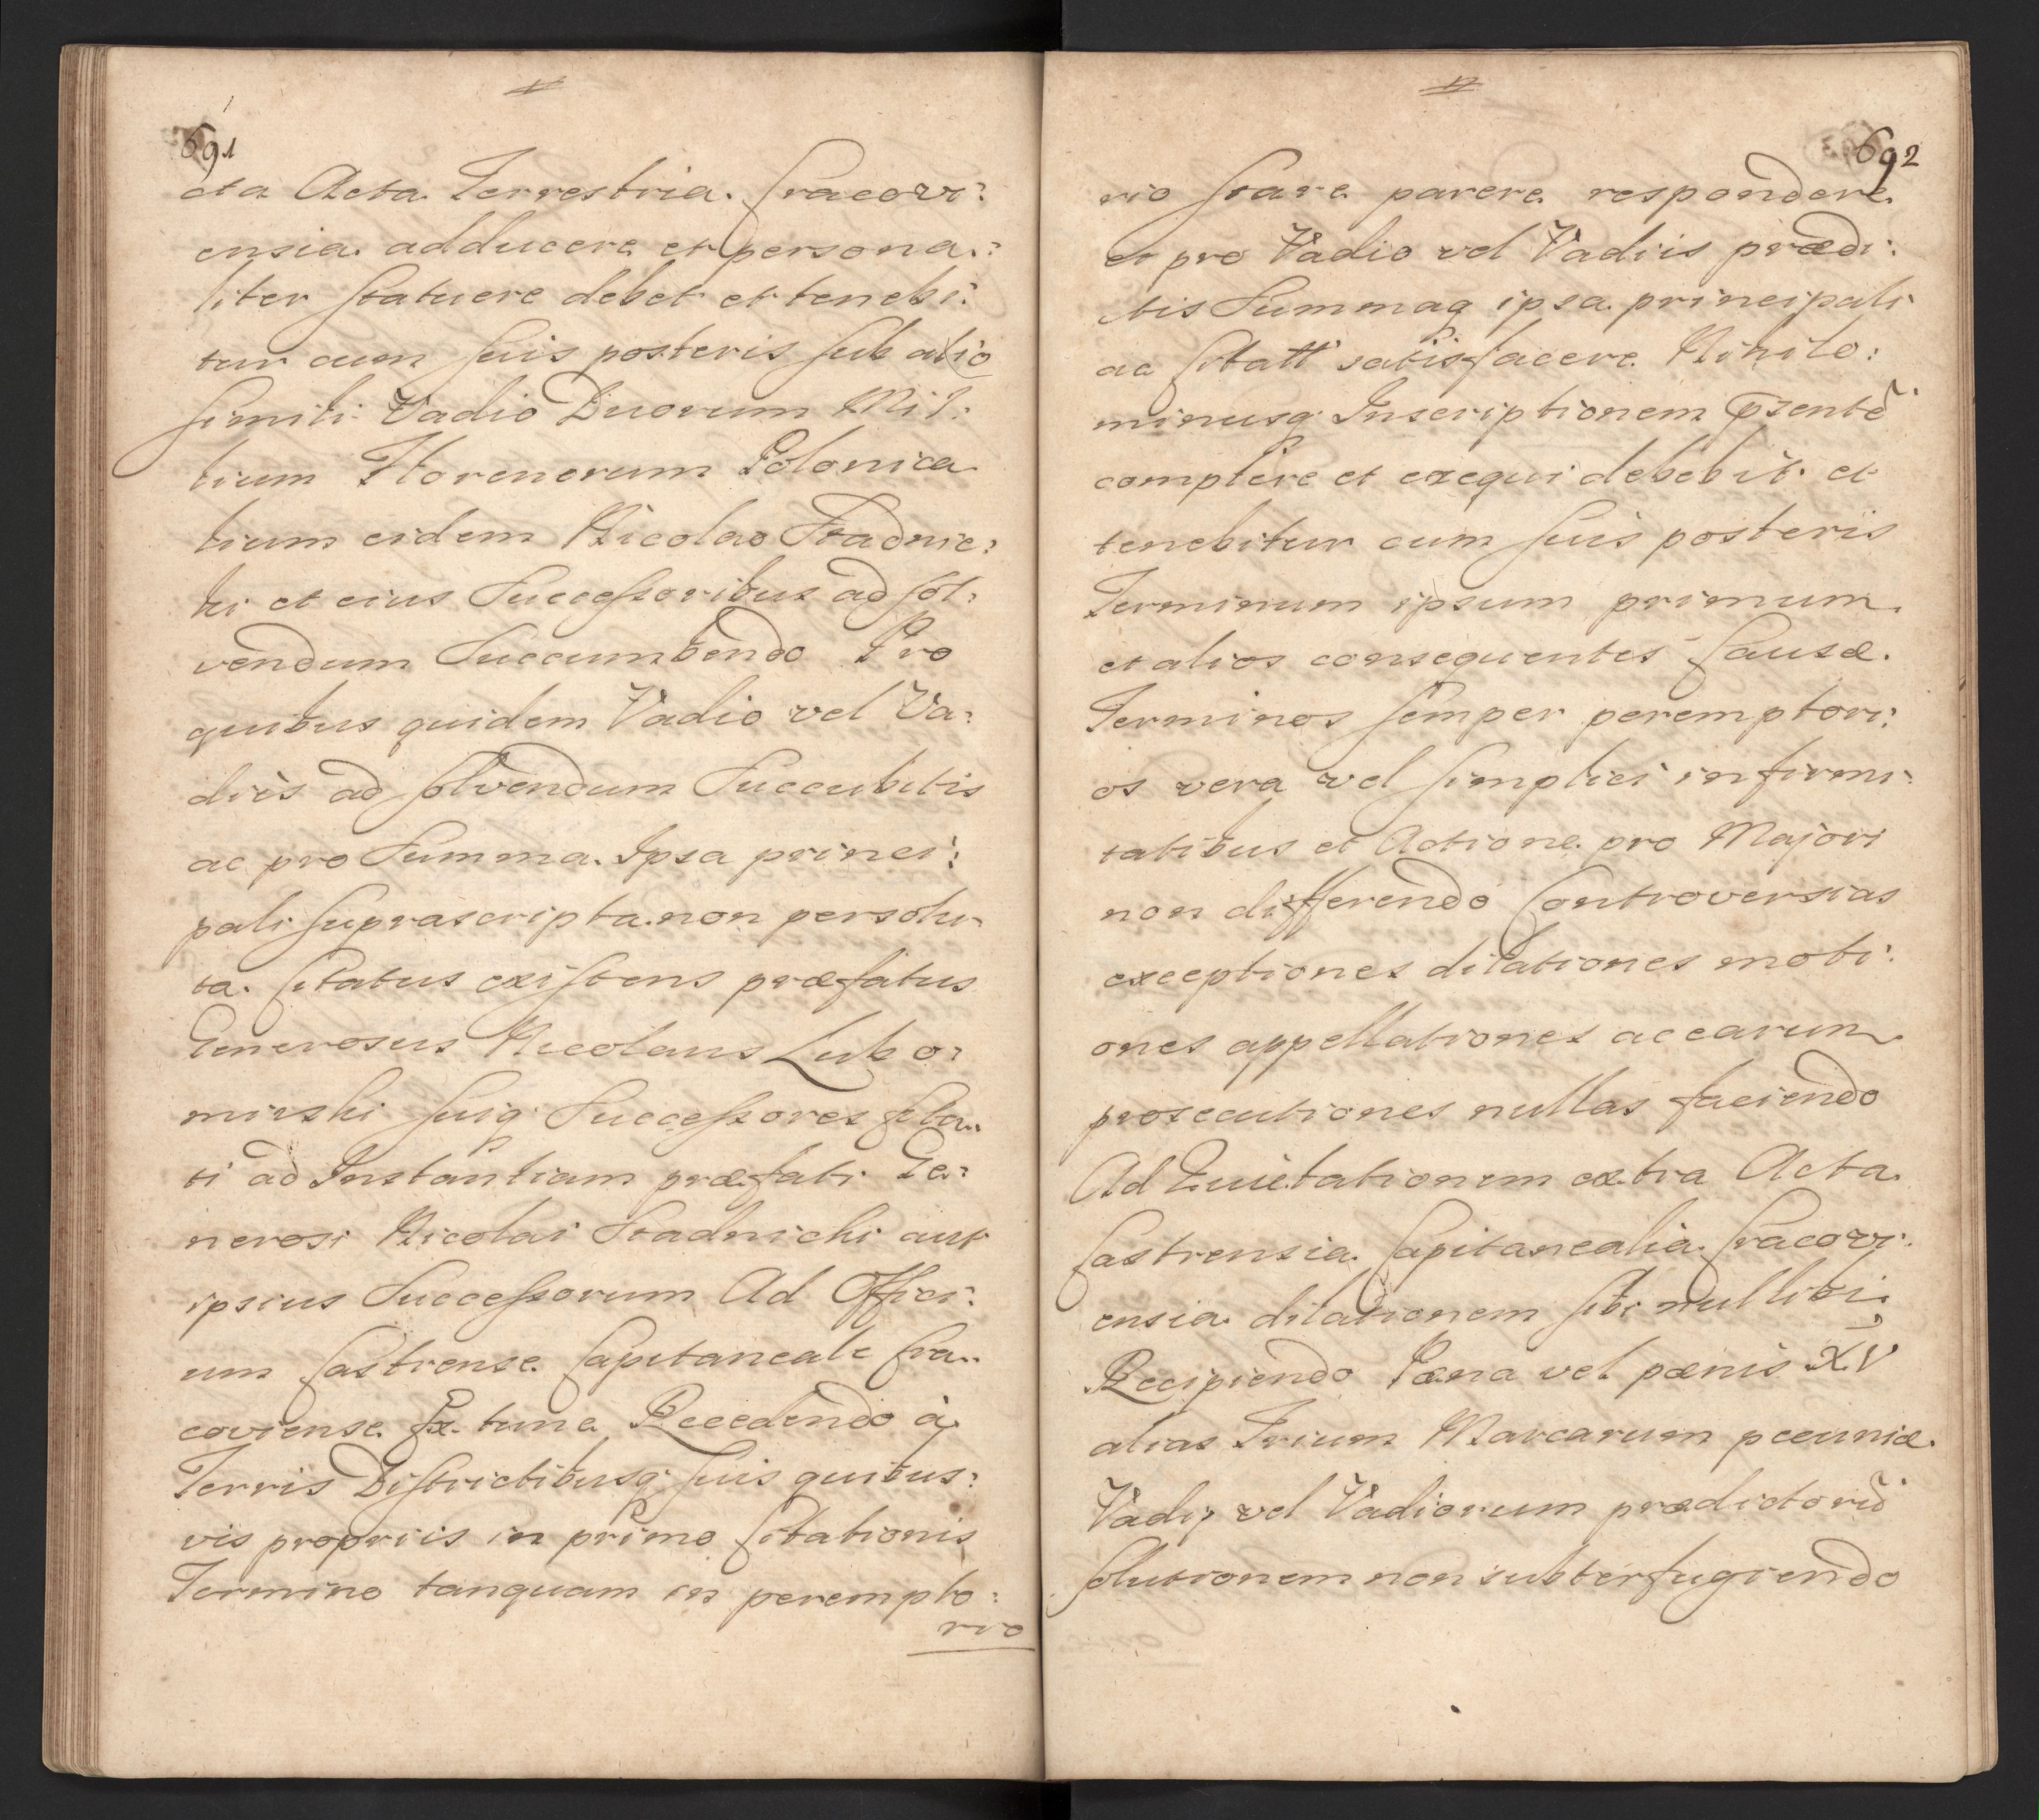 691
cta Acta Terrestria Cracovi:
ensia adducere et persona:
liter statuere debet et tenebi:
tur cum suis posteris sub alio
simili Vadio Duorum Mil:
lium Florenorum Polonica
lium eidem Nicolao Stadnic:
ki et eius Successoribus ad sol:
vendum Succumbendo Pro
quibus quidem Vadio vel Va:
diis ad solvendum Succubitis
ac pro Summa Ipsa princi:
pali suprascripta non persolu
ta. Citatus existens præfatus
Generosus Nicolaus Lubo:
mirski suiq Successores cita:
ti ad Instantiam præfati Ge:
nerosi Nicolai Stadnicki aut
ipsius Successorum Ad Offici:
um Castrense Capitaneale Cra:
coviense Ex tunc Recedendo à
Terris Districtibusq suis quibus:
vis propriis in primo Citationis
Termino tanquam in perempto:
rio
692
rio stare parere respondere
et pro Vadio vel Vadiis prædi:
ctis Summaq ipsa principali
ac Citatt satisfacere Nihilo:
minusq Inscriptionem pzentẽ
complere et exequi debebit et
tenebitur cum suis posteris
Terminum ipsum primum
et alios consequentes Causæ
Terminos semper peremptori:
os vera vel simplici infirmi:
tatibus et Actione pro Majori
non differendo Controversias
exceptiones dilationes moti:
ones appellationes ac earum
prosecutiones nullas faciendo
Ad Quietationem extra Acta
Castrensia Capitanealia Cracovi:
ensia dilationem sibi nullibi
Recipiendo Pæna vel pænis XV
alias Trium Marcarum pecuniæ
Vadij vel Vadiorum prædictorũ
solutionem non subterfugiendo